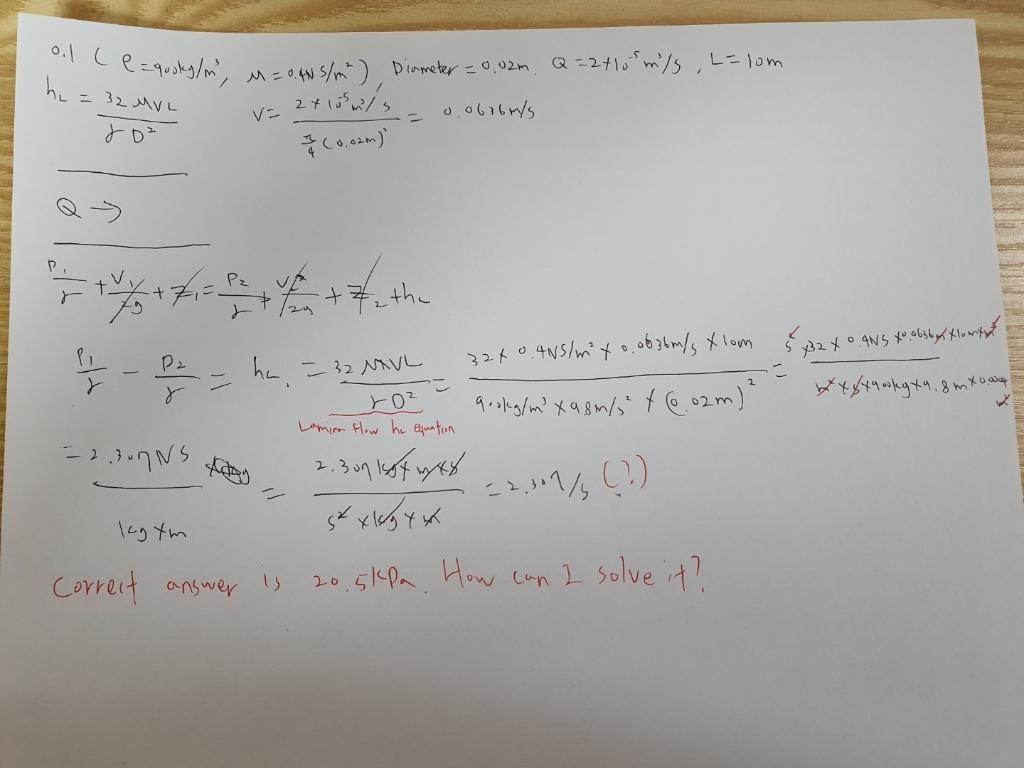 0.1 (ρ=900kg/m³, μ=0.4NS/m²), Diameter=0.02m. Q=2×10⁻⁵m³/s, L=10m
h_L = 32μVL / γD² V= 2×10⁻⁵m³/s / π/4 (0.02m)² = 0.0636m/s
Q →
P₁/γ + V₁²/2g + Z₁ = P₂/γ + V₂²/2g + Z₂ + h_L
P₁/γ - P₂/γ = h_L = 32μVL / γD² = 32×0.4NS/m²×0.0636m/s×10m / 900kg/m³×9.8m/s²×(0.02m)² = s²×32×0.4NS×0.0636m×10m×m³ / m²×s×900kg×9.8m×0.0004m²
Laminar flow h_L equation
= 2.307NS / kg×m = 2.307kg×m×s / s²×kg×m = 2.307/s (?)
Correct answer is 20.5kPa. How can I solve it?